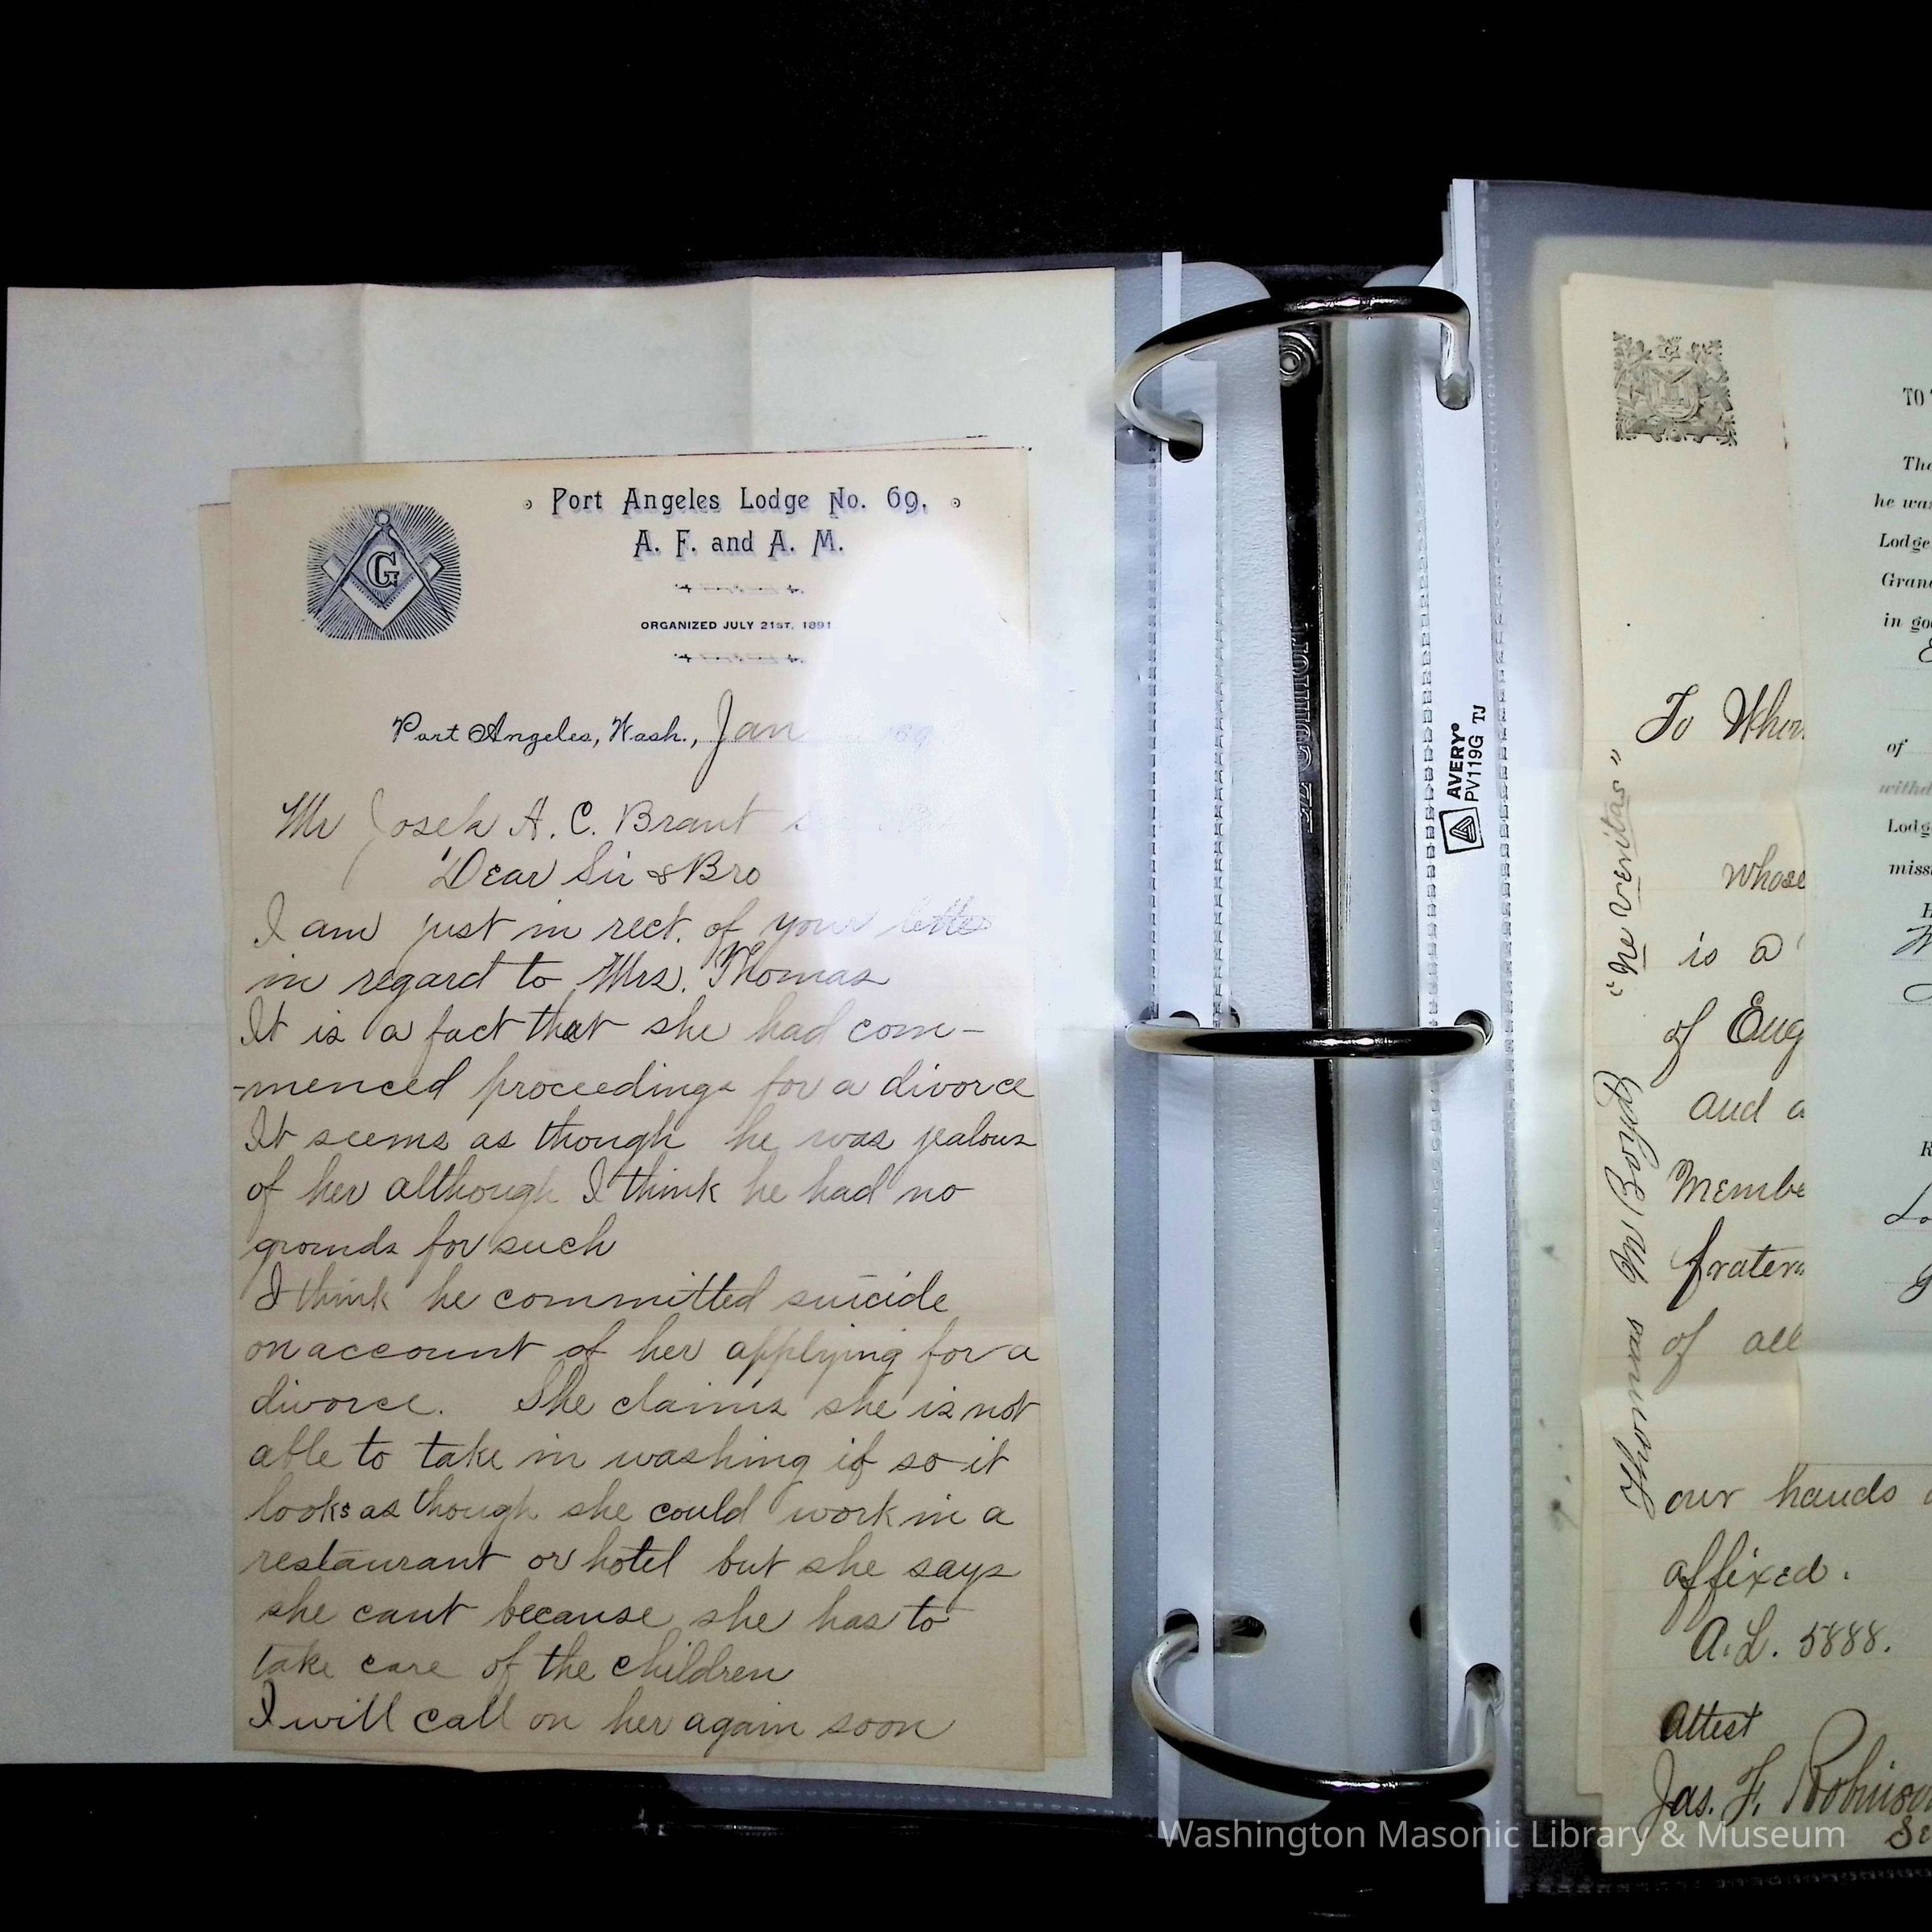 Port Angeles Lodge No. 69.
A. F. and A. M.
ORGANIZED JULY 21ST, 1891
Port Angeles, Wash., Jan
G
Mr A. C. Brant
Dear Sir & Bro
I am just in rect. of your letter
in regard to Mrs. Thomas
It is a fact that she had com-
-menced proceedings for a divorce
It seems as though he was jealous
of her although I think he had no
grounds for such
I think he committed suicide
on account of her applying for a
divorce. She claims she is not
able to take in washing if so it
looks as though she could work in a
restaurant or hotel but she says
she cant because she has to
take care of the children
I will call on her again soon
EZ COMFORT
AVERY®
PV119G TJ
"Ne veritas"
Thomas M Boyd
To Whom
whose
is a
of Eng
and a
Membe
fratern
of all
our hands
affixed.
A.L. 5888.
Attest
Jas. F. Robinson
Se
TO
The
he was
Lodge
Gran
in go
of
withd
Lodg
miss
Washington Masonic Library & Museum